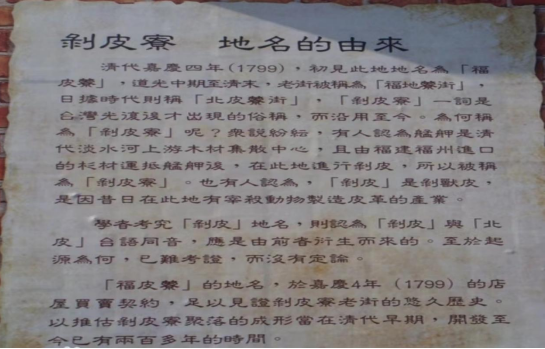 剝皮寮　地名的由來
清代嘉慶四年(1799)，初見此地地名為「福
皮藔」，道光中期至清末，老街被稱為「福地藔街」，
日據時代則稱「北皮藔街」，「剝皮寮」一詞是
台灣光復後才出現的俗稱，而沿用至今。為何稱
為「剝皮寮」呢？眾說紛紜，有人認為艋舺是清
代淡水河上游木材集散中心，且由福建福州進口
的杉材運抵艋舺後，在此地進行剝皮，所以被稱
為「剝皮寮」。也有人認為，「剝皮」是剝獸皮，
是因昔日在此地有宰殺動物製造皮革的產業。
學者考究「剝皮」地名，則認為「剝皮」與「北
皮」台語同音，應是由前者衍生而來的。至於起
源為何，已難考證，而沒有定論。
「福皮藔」的地名，於嘉慶4年（1799）的店
屋買賣契約，足以見證剝皮寮老街的悠久歷史。
以推估剝皮寮聚落的成形當在清代早期，開發至
今已有兩百多年的時間。